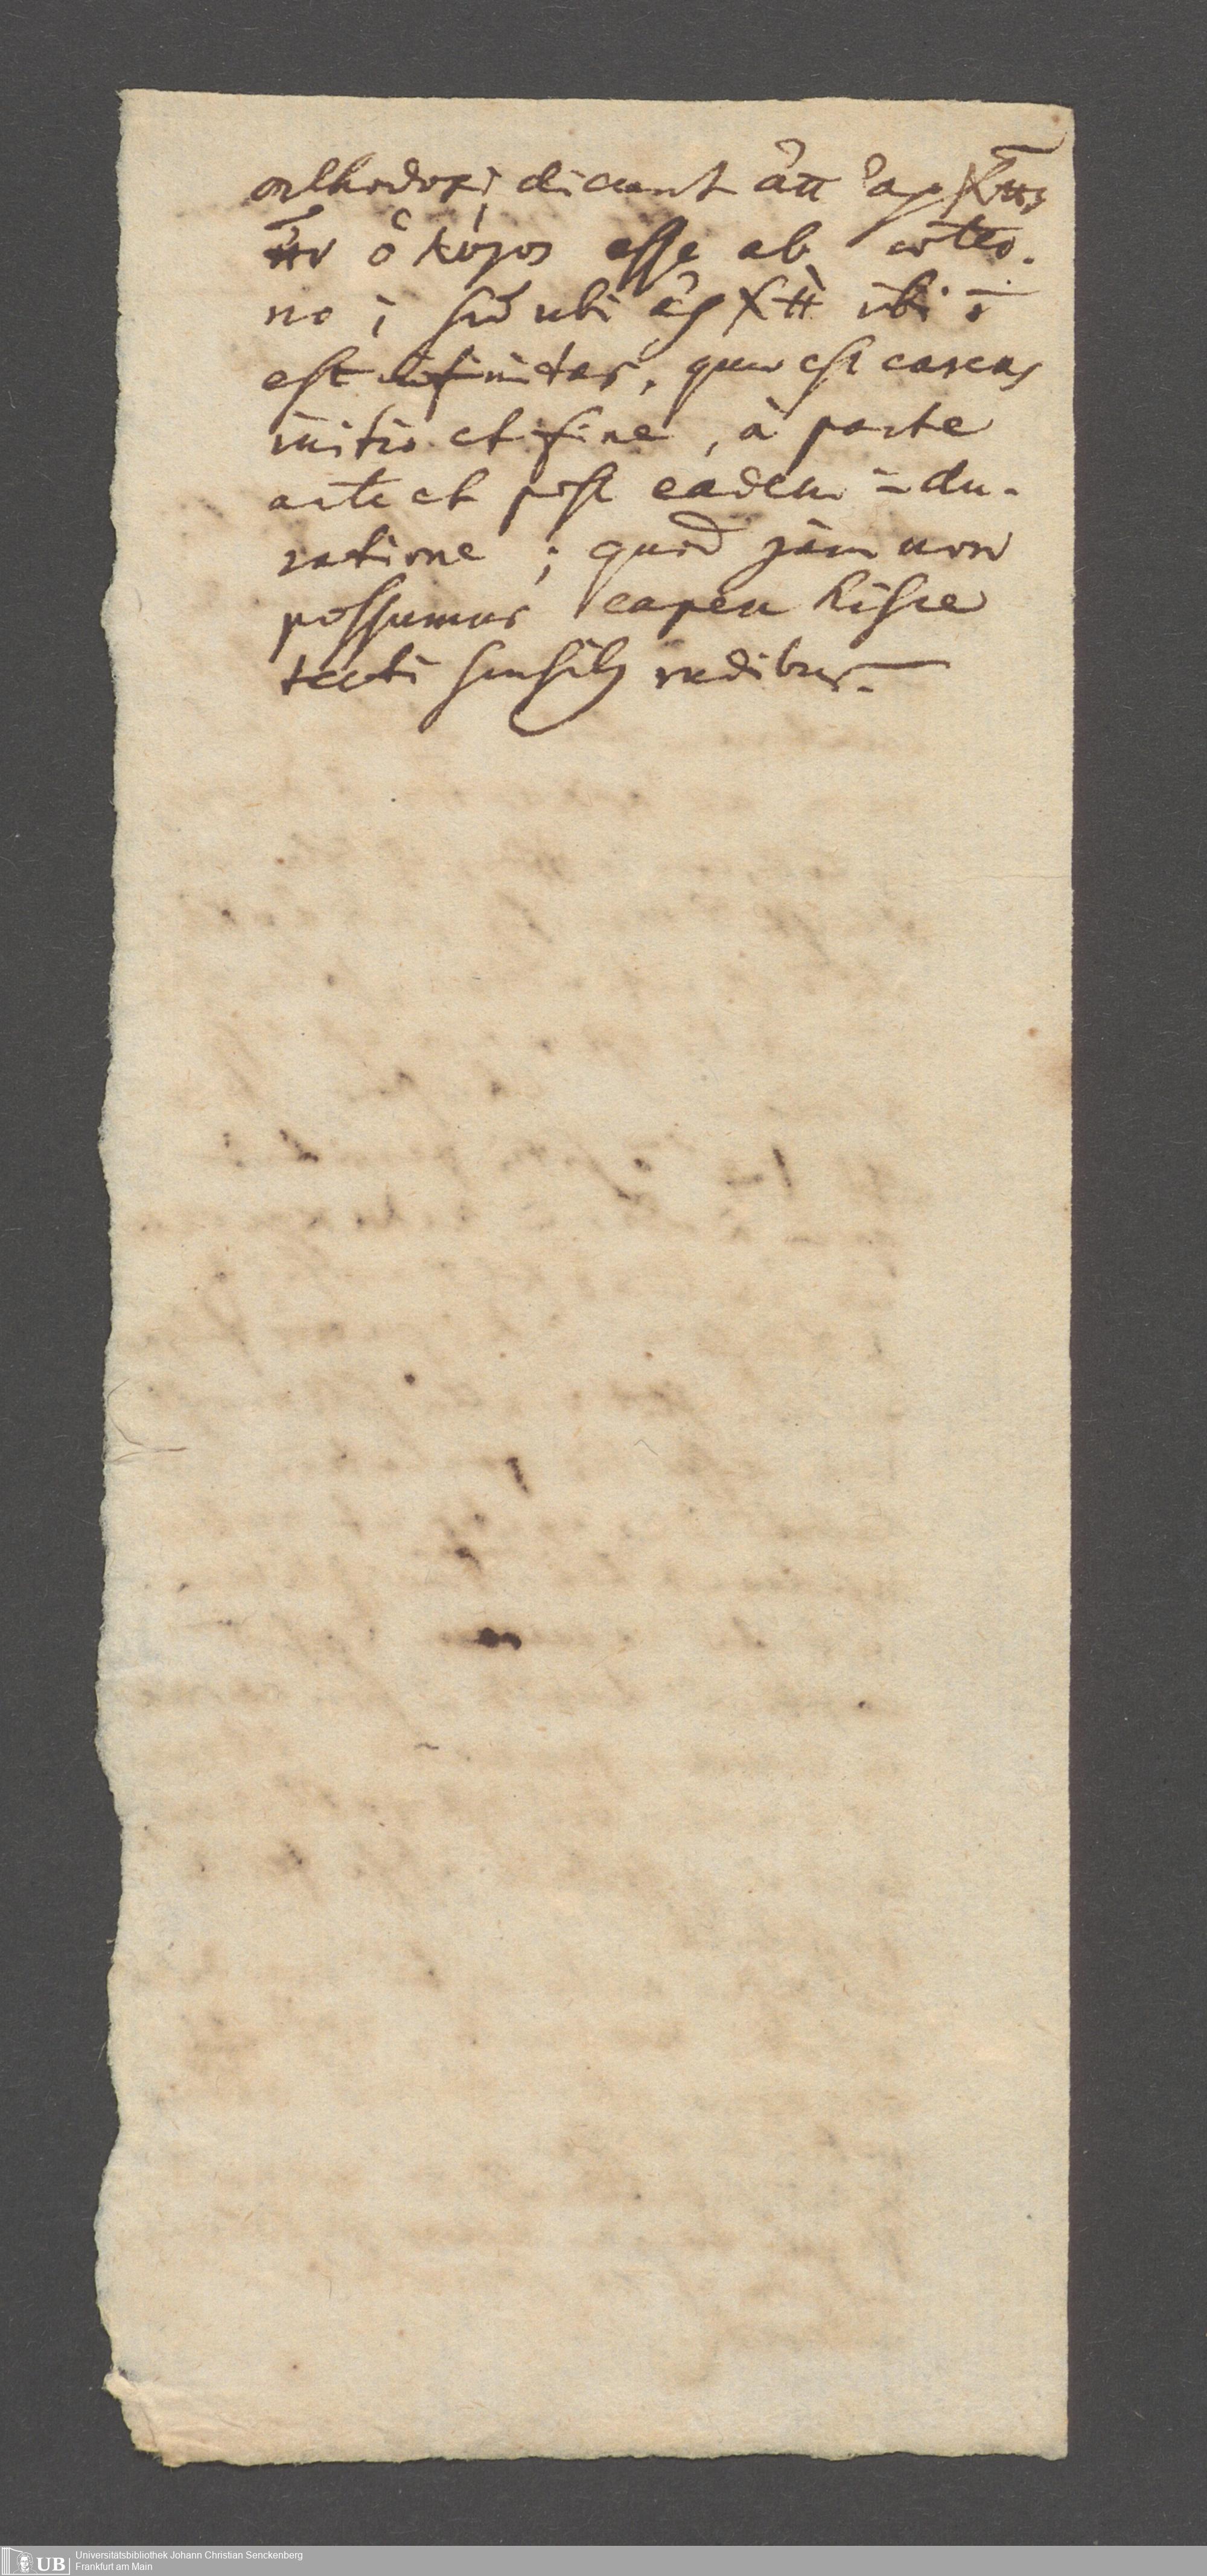 orthodoxi dicunt ἀπ' ἀρχῆς
ἦν ὁ λόγος esse ab aeter-
no; sed ubi ἀρχὴ ibi ō
est infinitas, quae est careas
initio et fine, à parte
ante et post eadem = du-
ratione; quod jam non
possumus capere hisce
tecti sensibq rudibus.
Universitätsbibliothek Johann Christian Senckenberg
Frankfurt am Main
UB